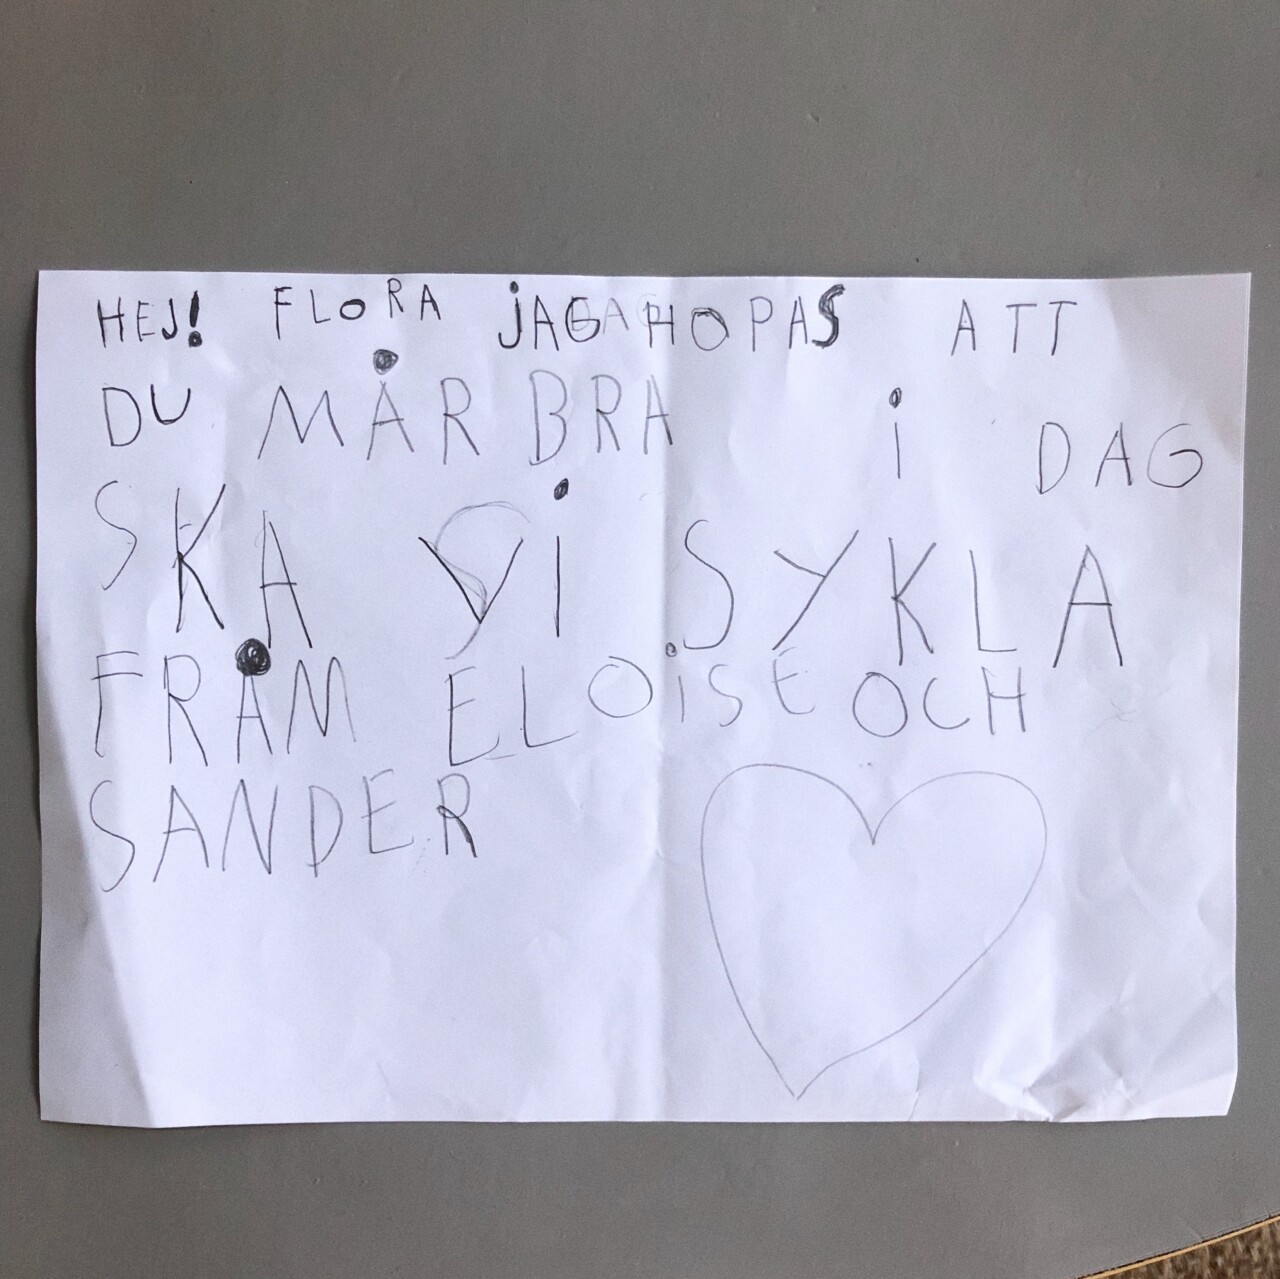 HEJ! FLORA JAG HOPAS ATT
DU MÅR BRA i DAG
SKA Vi SYKLA
FRÅM ELOiSE OCH
SANDER